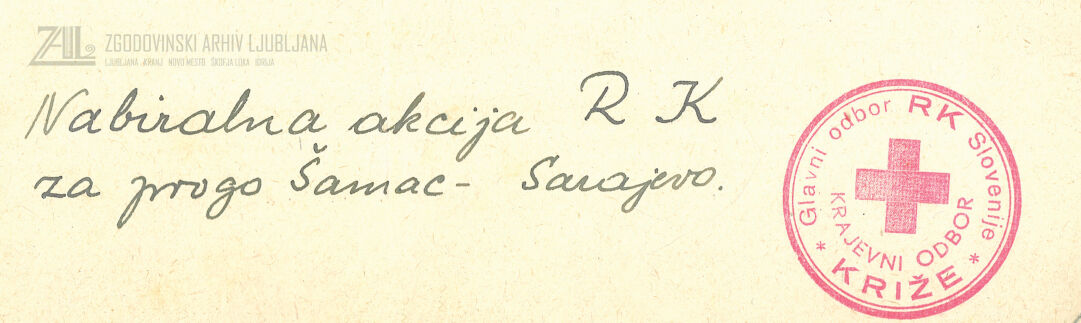 ZAL ZGODOVINSKI ARHIV LJUBLJANA
LJUBLJANA KRANJ NOVO MESTO ŠKOFJA LOKA IDRIJA
Nabiralna akcija R K
za progo Šamac - Sarajevo.
Glavni odbor RK Slovenije
KRAJEVNI ODBOR
* KRIŽE *